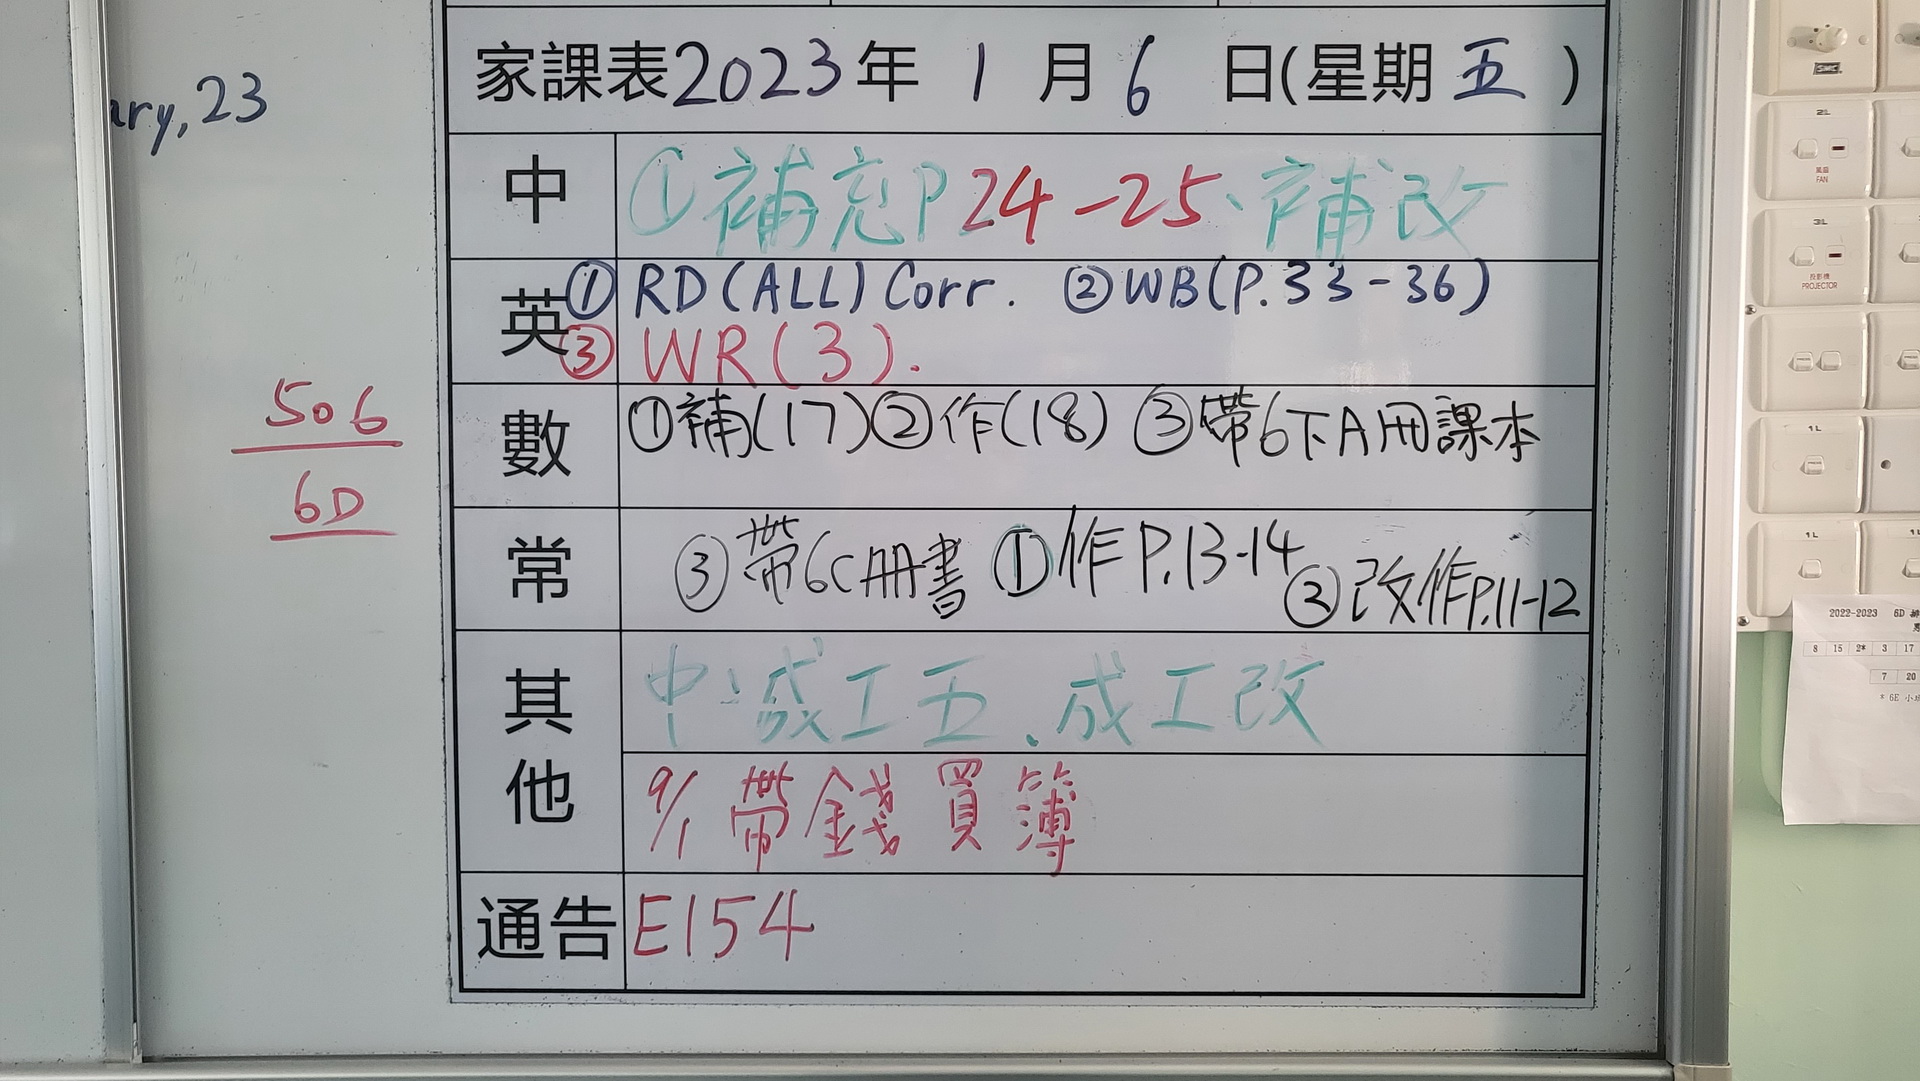 ary,23
506
6D
家課表2023年 1 月 6 日(星期五)
中
①補充P24-25、補改
英
①RD(ALL)Corr. ②WB(P.33-36)
③WR(3).
數
①補(17)②作(18) ③帶6下A冊課本
常
③帶6C冊書 ①作P.13-14
②改作P.11-12
其他
中:成工五.成工改
9/1 帶錢買簿
通告
E154
2L
風扇
FAN
3L
投影機
PROJECTOR
1L
1L
1L
2022-2023 6D
8 15 2* 3 17
7 20
* 6E 小